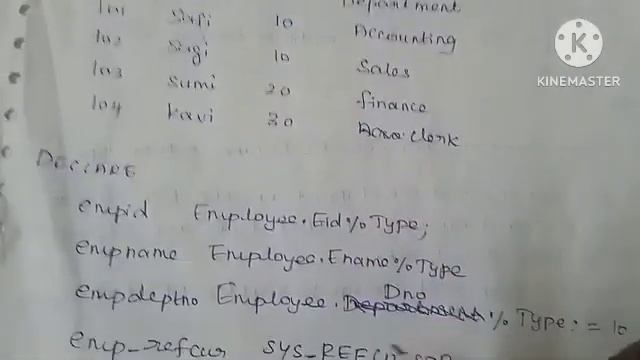 101 sirfi 10 Department
102 sirgi 10 Accounting
103 sumi 20 Sales
104 kavi 30 finance
clerk
K
KINEMASTER
DECLARE
empid Employee.Eid%Type;
empname Employee.Ename%Type
empdeptno Employee.Dno%Type:=10
emp_refcur SYS_REFCURSOR